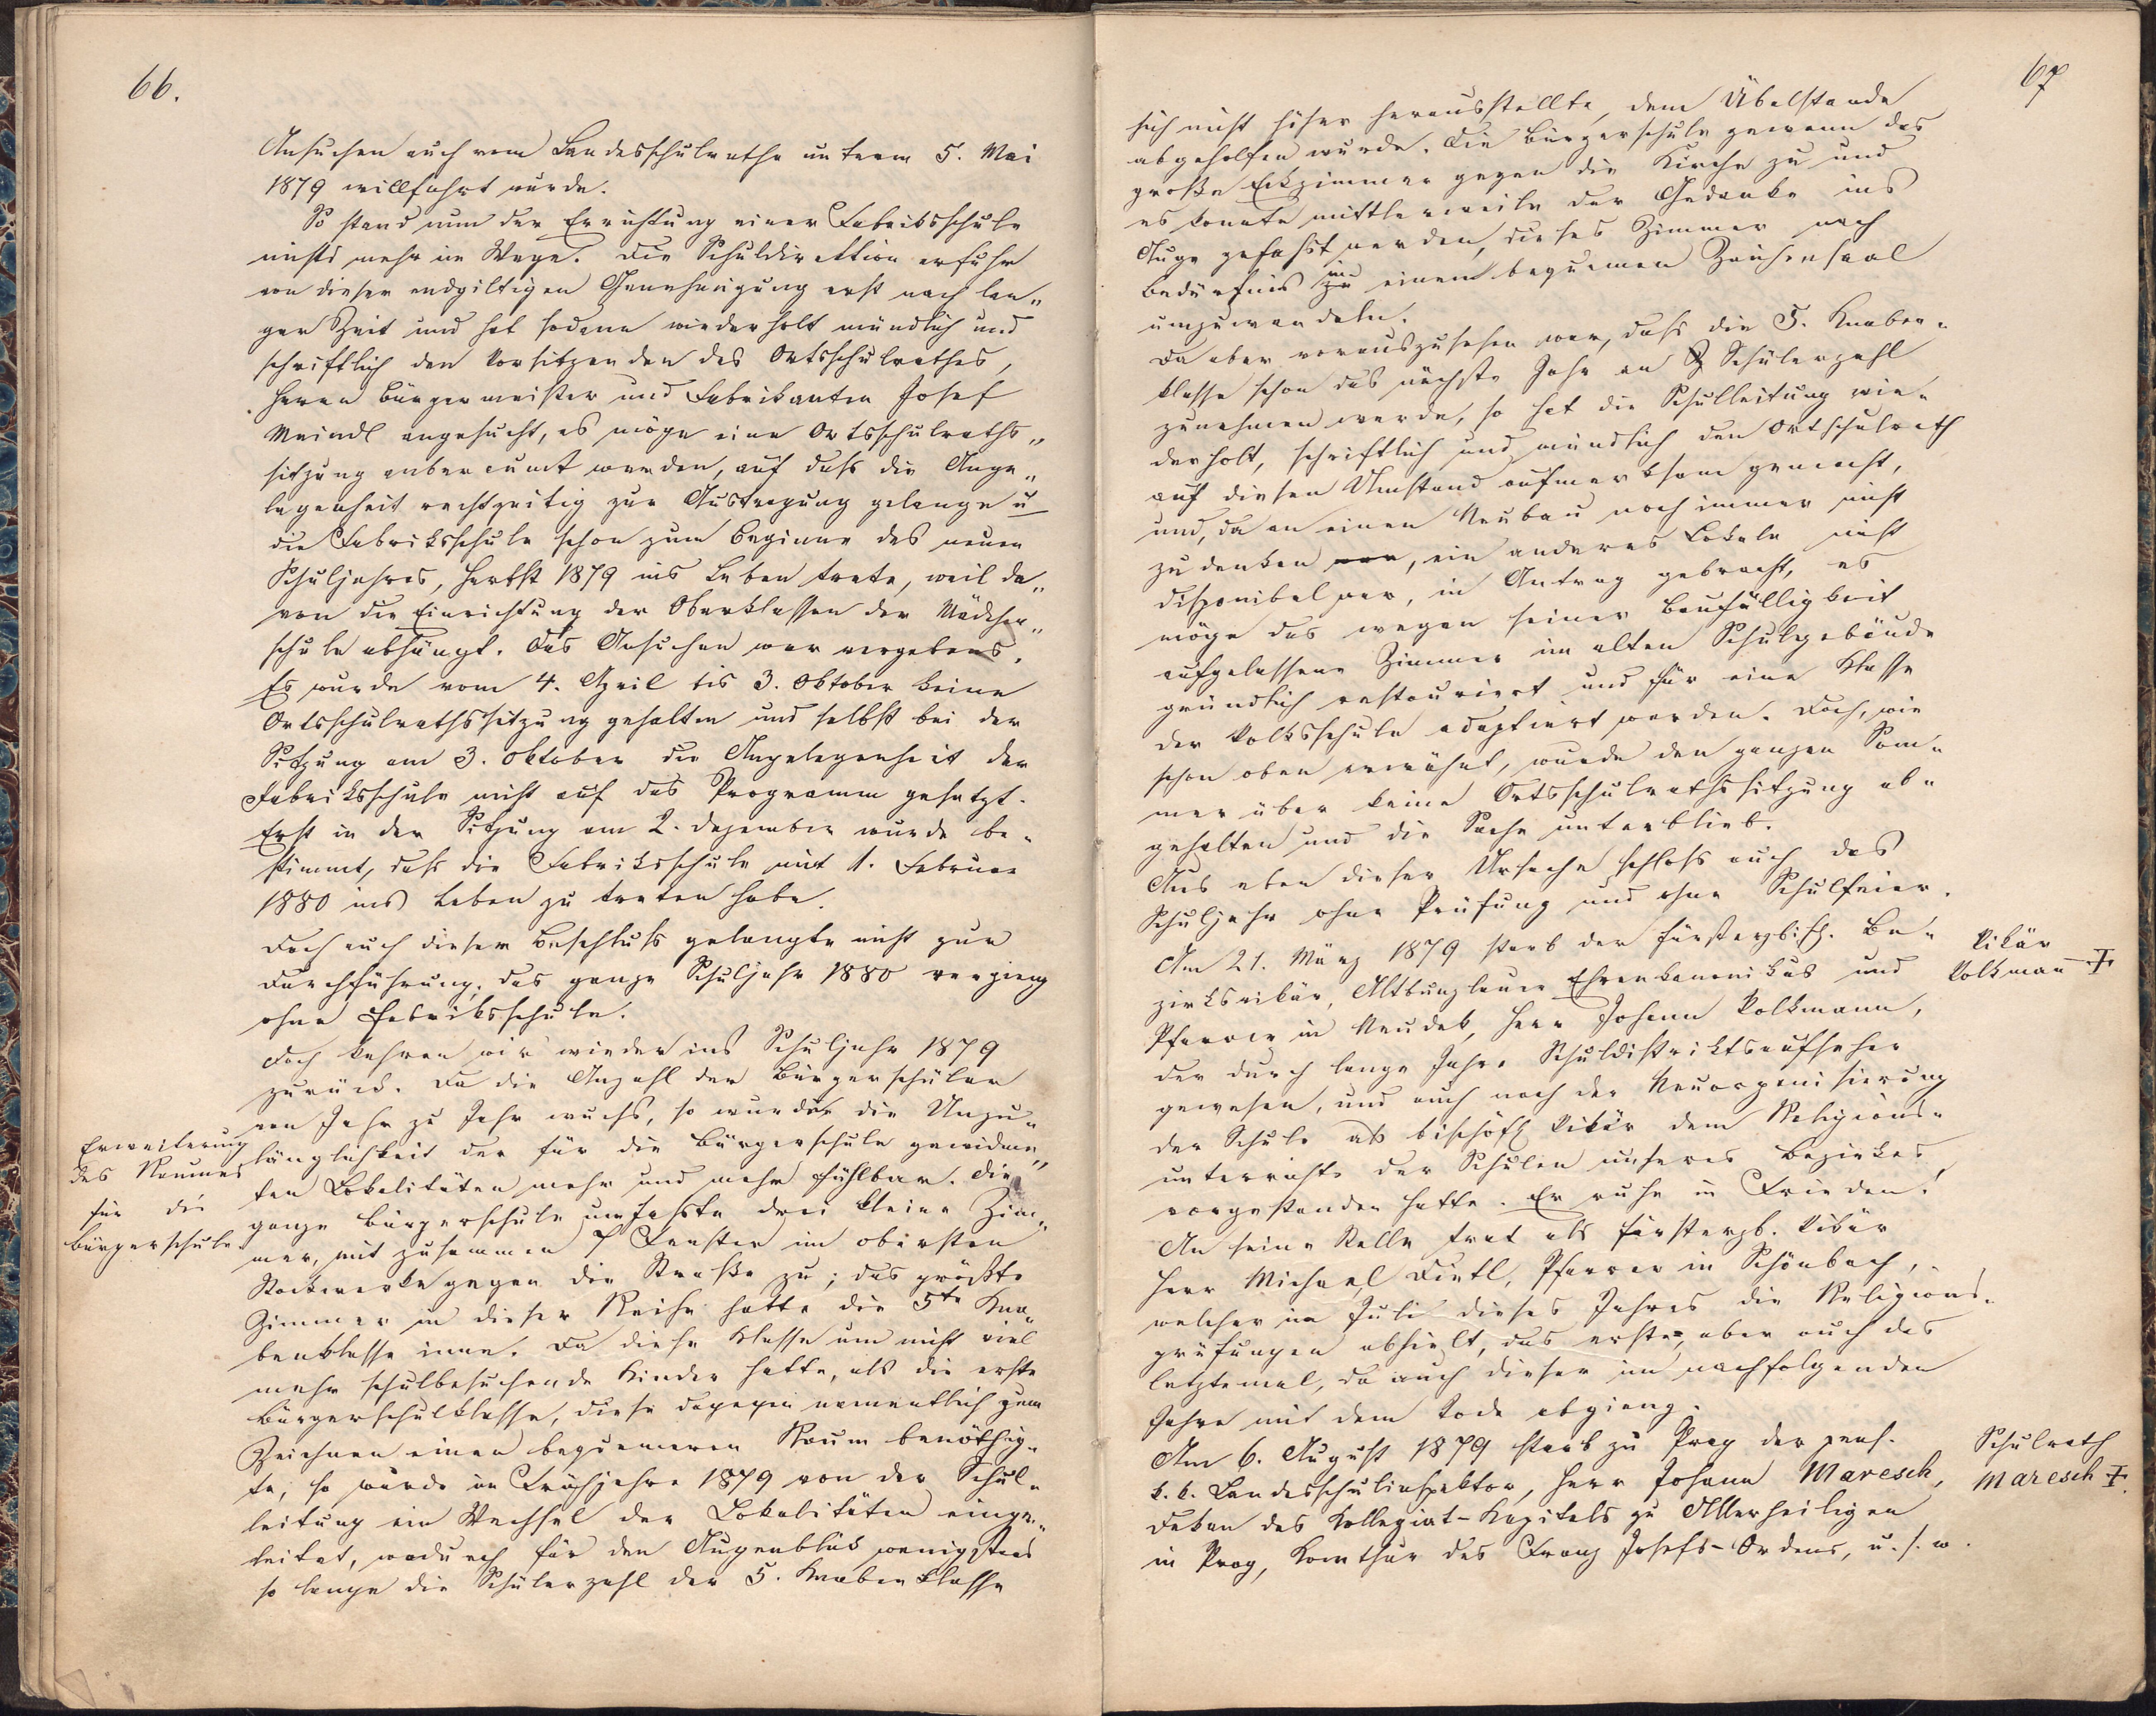 66.
Ansuchen auch vom Landesschulrathe unterm 5. Mai
1879 willfahrt wurde.
So stand nun der Errichtung einer Fabriksschule
nichts mehr im Wege. Die Schuldirektion erfuhr
von dieser endgiltigen Genehmigung erst nach lan„
ger Zeit und hat sodann wiederholt mündlich und
schriftlich den Vorsitzenden des Ortsschulrathes,
Herrn Bürgermeister und Fabrikanten Josef
Meindl angesucht, es möge eine Ortsschulraths„
sitzung anberaumt werden, auf daß die Ange„
legenheit rechtzeitig zur Austragung gelange u
die Fabriksschule schon zum Beginne des neuen
Schuljahres, Herbst 1879 ins Leben trete, weil da„
von die Einrichtung der Oberklassen der Mädchen„
schule abhängt. Das Ansuchen war vergebens.
Es wurde vom 4. April bis 3. Oktober keine
Ortsschulrathssitzung gehalten und selbst bei der
Sitzung am 3. Oktober die Angelegenheit der
Fabriksschule nicht auf das Programm gesetzt.
Erst in der Sitzung am 2. Dezember wurde be-
stimmt, daß die Fabriksschule mit 1. Februar
1880 ins Leben zu treten habe.
Doch auch dieser Beschluß gelangte nicht zur
Durchführung, das ganze Schuljahr 1880 vergieng
ohne Fabriksschule.
Doch kehren wir wieder ins Schuljahr 1879
zurück. Da die Anzahl der Bürgerschüler
von Jahr zu Jahr wuchs, so wurde die Unzu„
länglichkeit der für die Bürgerschule gewidme„
ten Lokalitäten mehr und mehr fühlbar. Die
ganze Bürgerschule umfaßte drei kleine Zim„
mer, mit zusammen 7 Fenster im obersten
Stockwerke gegen die Straße zu; das größte
Zimmer in dieser Reihe hatte die 5te Kna„
benklasse inne. Da diese Klasse um nicht viel
mehr schulbesuchende Kinder hatte, als die erste
Bürgerschulklasse, diese dagegen namentlich zum
Zeichnen einen bequemeren Raum benöthig„
te, so wurde im Frühjahre 1879 von der Schul„
leitung ein Wechsel der Lokalitäten einge„
leitet, wodurch für den Augenblick wenigstens
so lange die Schülerzahl der 5. Knabenklasse
Erweiterung
des Raumes
für die
Bürgerschule
67
sich nicht höher herausstellte, dem Übelstande
abgeholfen wurde. Die Bürgerschule gewann das
große Eckzimmer gegen die Kirche zu und
es konnte mittlerweile der Gedanke ins
Auge gefaßt werden, dieses Zimmer nach
Bedürfnis in einen bequemen Zeichensaal
umzuwandeln.
Da aber vorauszusehen war, daß die 5. Knaben-
klasse schon das nächste Jahr an Schülerzahl
zunehmen werde, so hat die Schulleitung wie-
derholt, schriftlich und mündlich den Ortsschulrath
auf diesen Umstand aufmerksam gemacht,
und, da an einen Neubau noch immer nicht
zu denken war, ein anderes Lokale nicht
disponibel war, in Antrag gebracht, es
möge das wegen seiner Baufälligkeit
aufgelassene Zimmer im alten Schulgebäude
gründlich restauriert und für eine Klasse
der Volksschule adaptiert werden. Doch, wie
schon oben erwähnt, wurde den ganzen Som-
mer über keine Ortsschulrathssitzung ab-
gehalten und die Sache unterblieb.
Aus eben dieser Ursache schloß auch das
Schuljahr ohne Prüfung und ohne Schulfeier.
Am 21. März 1879 starb der fürsterzbisch. Be-
zirksvikär, Altbunzlauer Ehrenkanonikus und
Pfarrer in Neudek, Herr Johann Volkmann,
der durch lange Jahre Schuldistriktsaufseher
gewesen, und auch nach der Neuorganisierung
der Schule als bischöfl. Vikär dem Religions-
unterrichte der Schulen unseres Bezirkes
vorgestanden hatte. Er ruhe in Frieden!
An seine Stelle trat als fürsterzb. Vikär
Herr Michael Dietl, Pfarrer in Schönbach,
welcher im Juli dieses Jahres die Religions-
prüfungen abhielt, das erste, aber auch das
letztemal, da auch dieser im nachfolgenden
Jahre mit dem Tode abgieng.
Am 6. August 1879 starb zu Prag der pens.
k. k. Landesschulinspektor, Herr Johann Maresch,
Dekan des Kollegiat-Kapitels zu Allerheiligen
in Prag, Komthur des Franz Josefs-Ordens, u. s. w.
Vikär
Volkmann †
Schulrath
Maresch †.